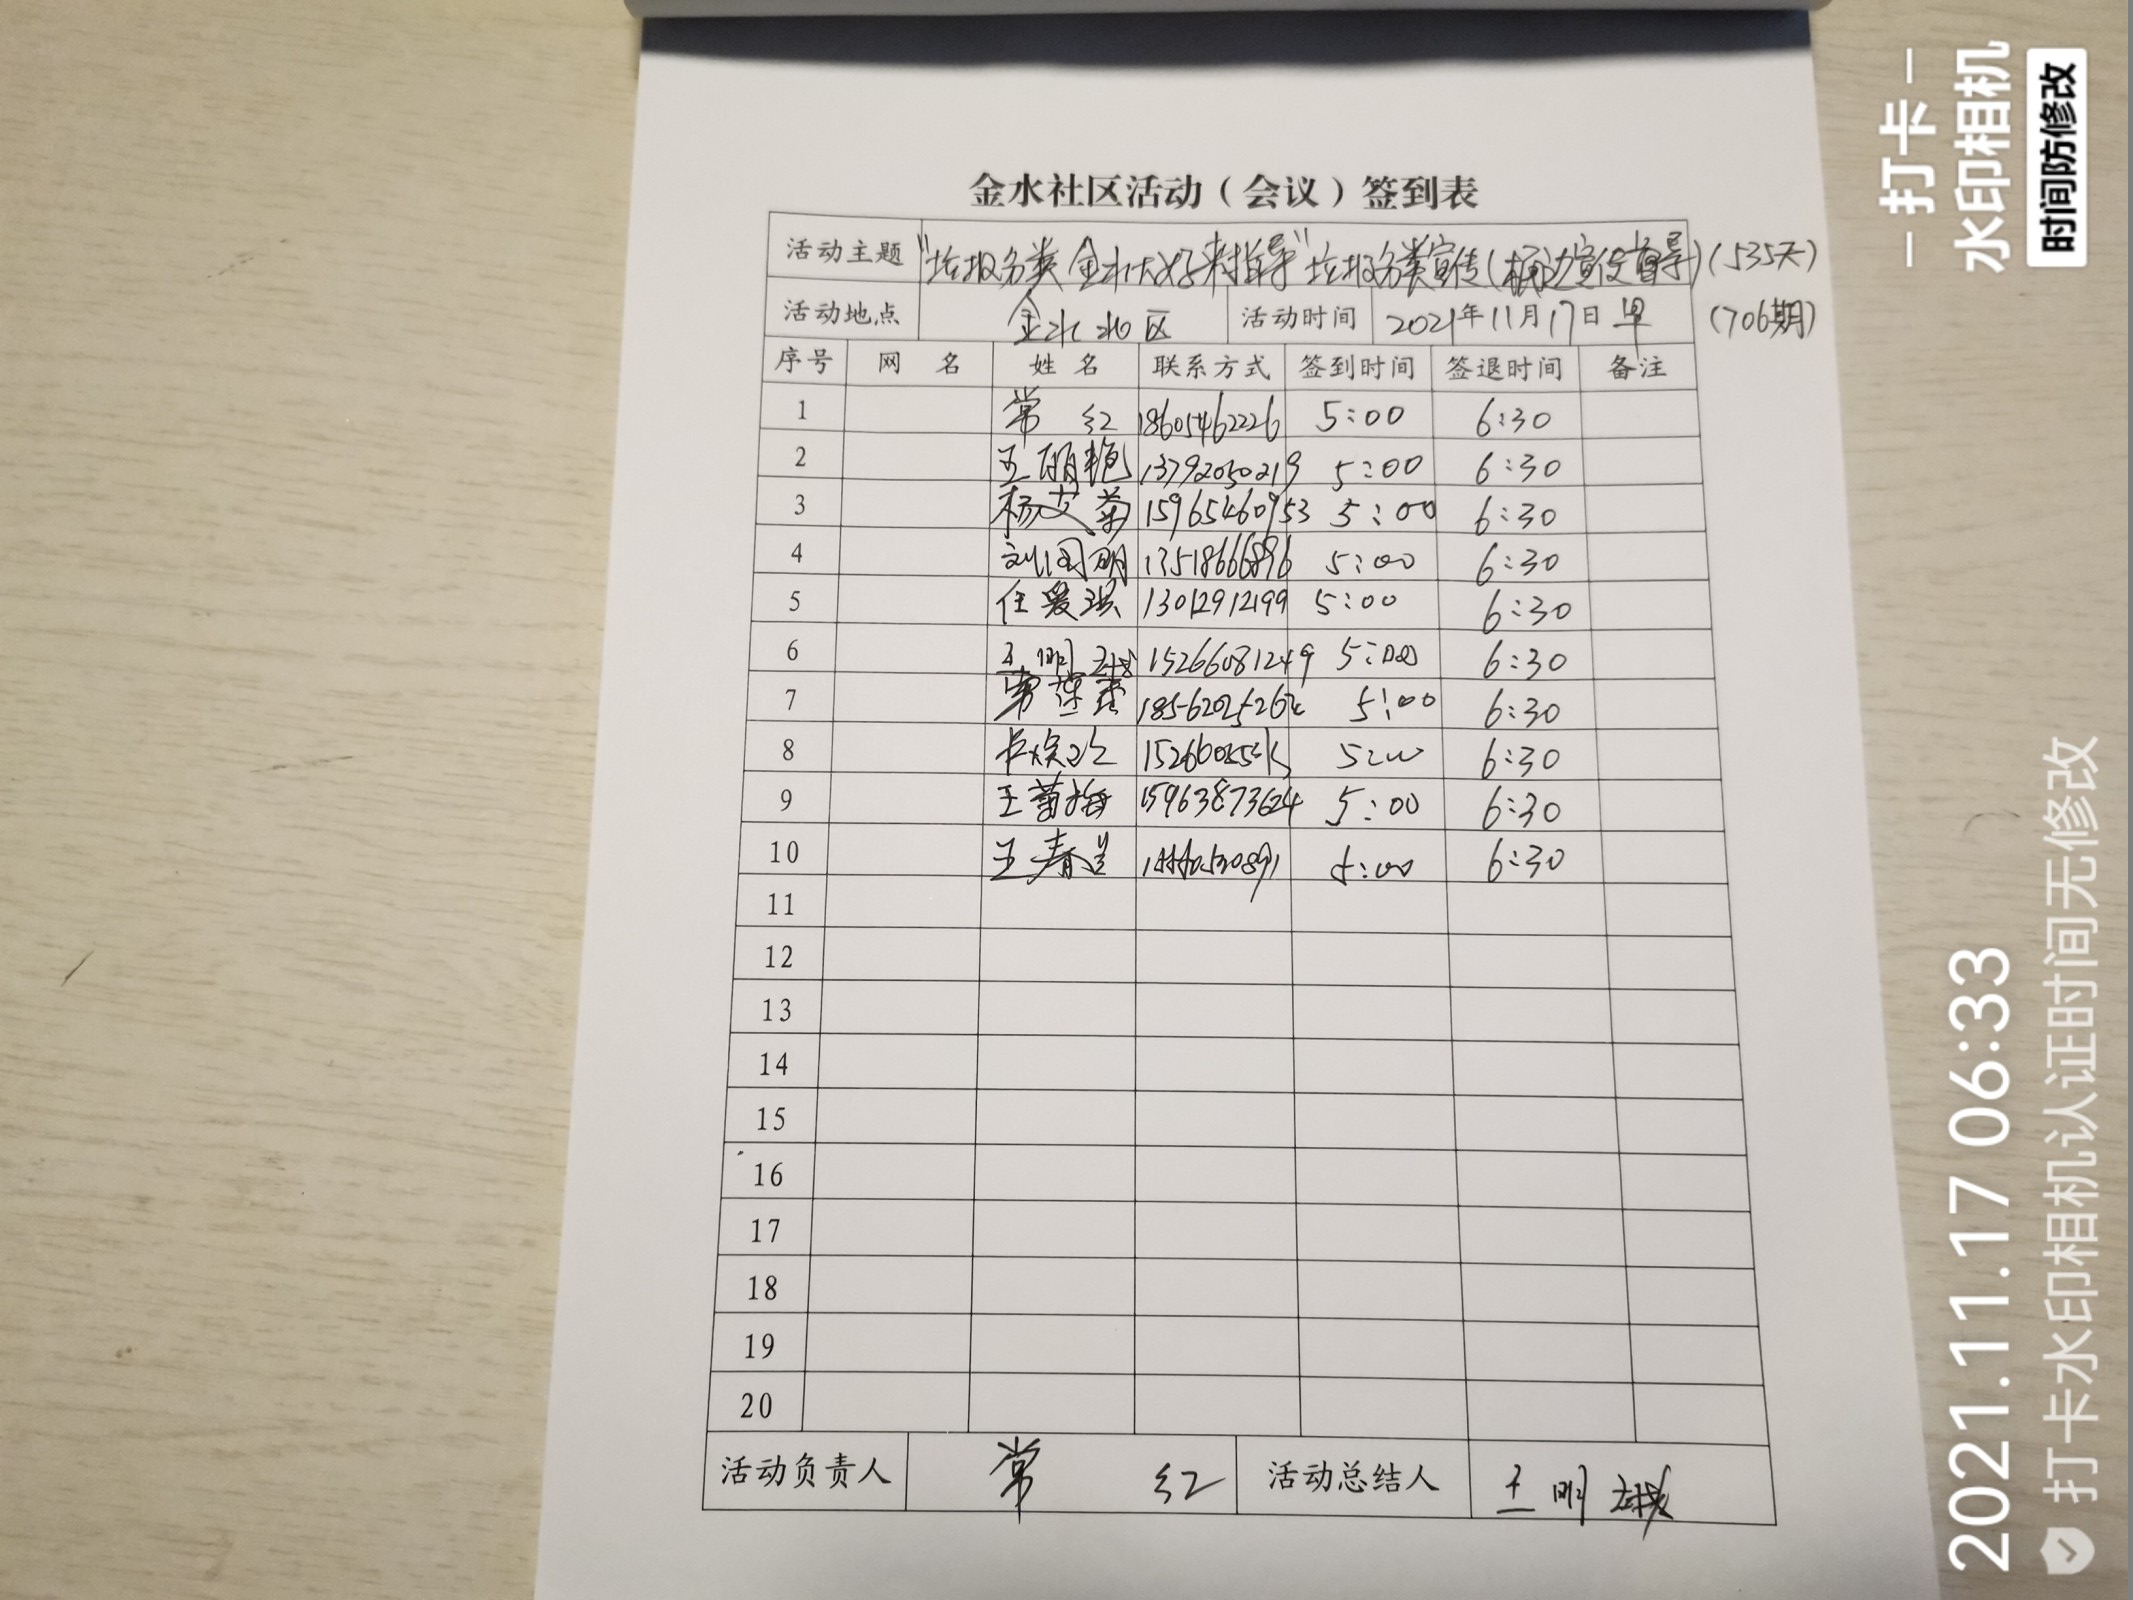 金水社区活动（会议）签到表
活动主题 "垃圾分类 金水大好 来指导" 垃圾分类宣传(桶边宣传督导) (535天)
活动地点 金水北区 活动时间 2021年11月17日 早 (706期)
序号 网 名 姓 名 联系方式 签到时间 签退时间 备注
1 常 红 18605462226 5:00 6:30
2 王丽艳 13792050219 5:00 6:30
3 杨艾菊 15965460953 5:00 6:30
4 刘国明 13518666896 5:00 6:30
5 任爱琪 13012912199 5:00 6:30
6 王明城 15266081249 5:00 6:30
7 5:00 6:30
8 5:00 6:30
9 王菊梅 15963873624 5:00 6:30
10 王春兰 5:00 6:30
11
12
13
14
15
16
17
18
19
20
活动负责人 常 红 活动总结人 王明城
打卡
水印相机
时间防修改
2021.11.17 06:33
打卡水印相机认证时间无修改